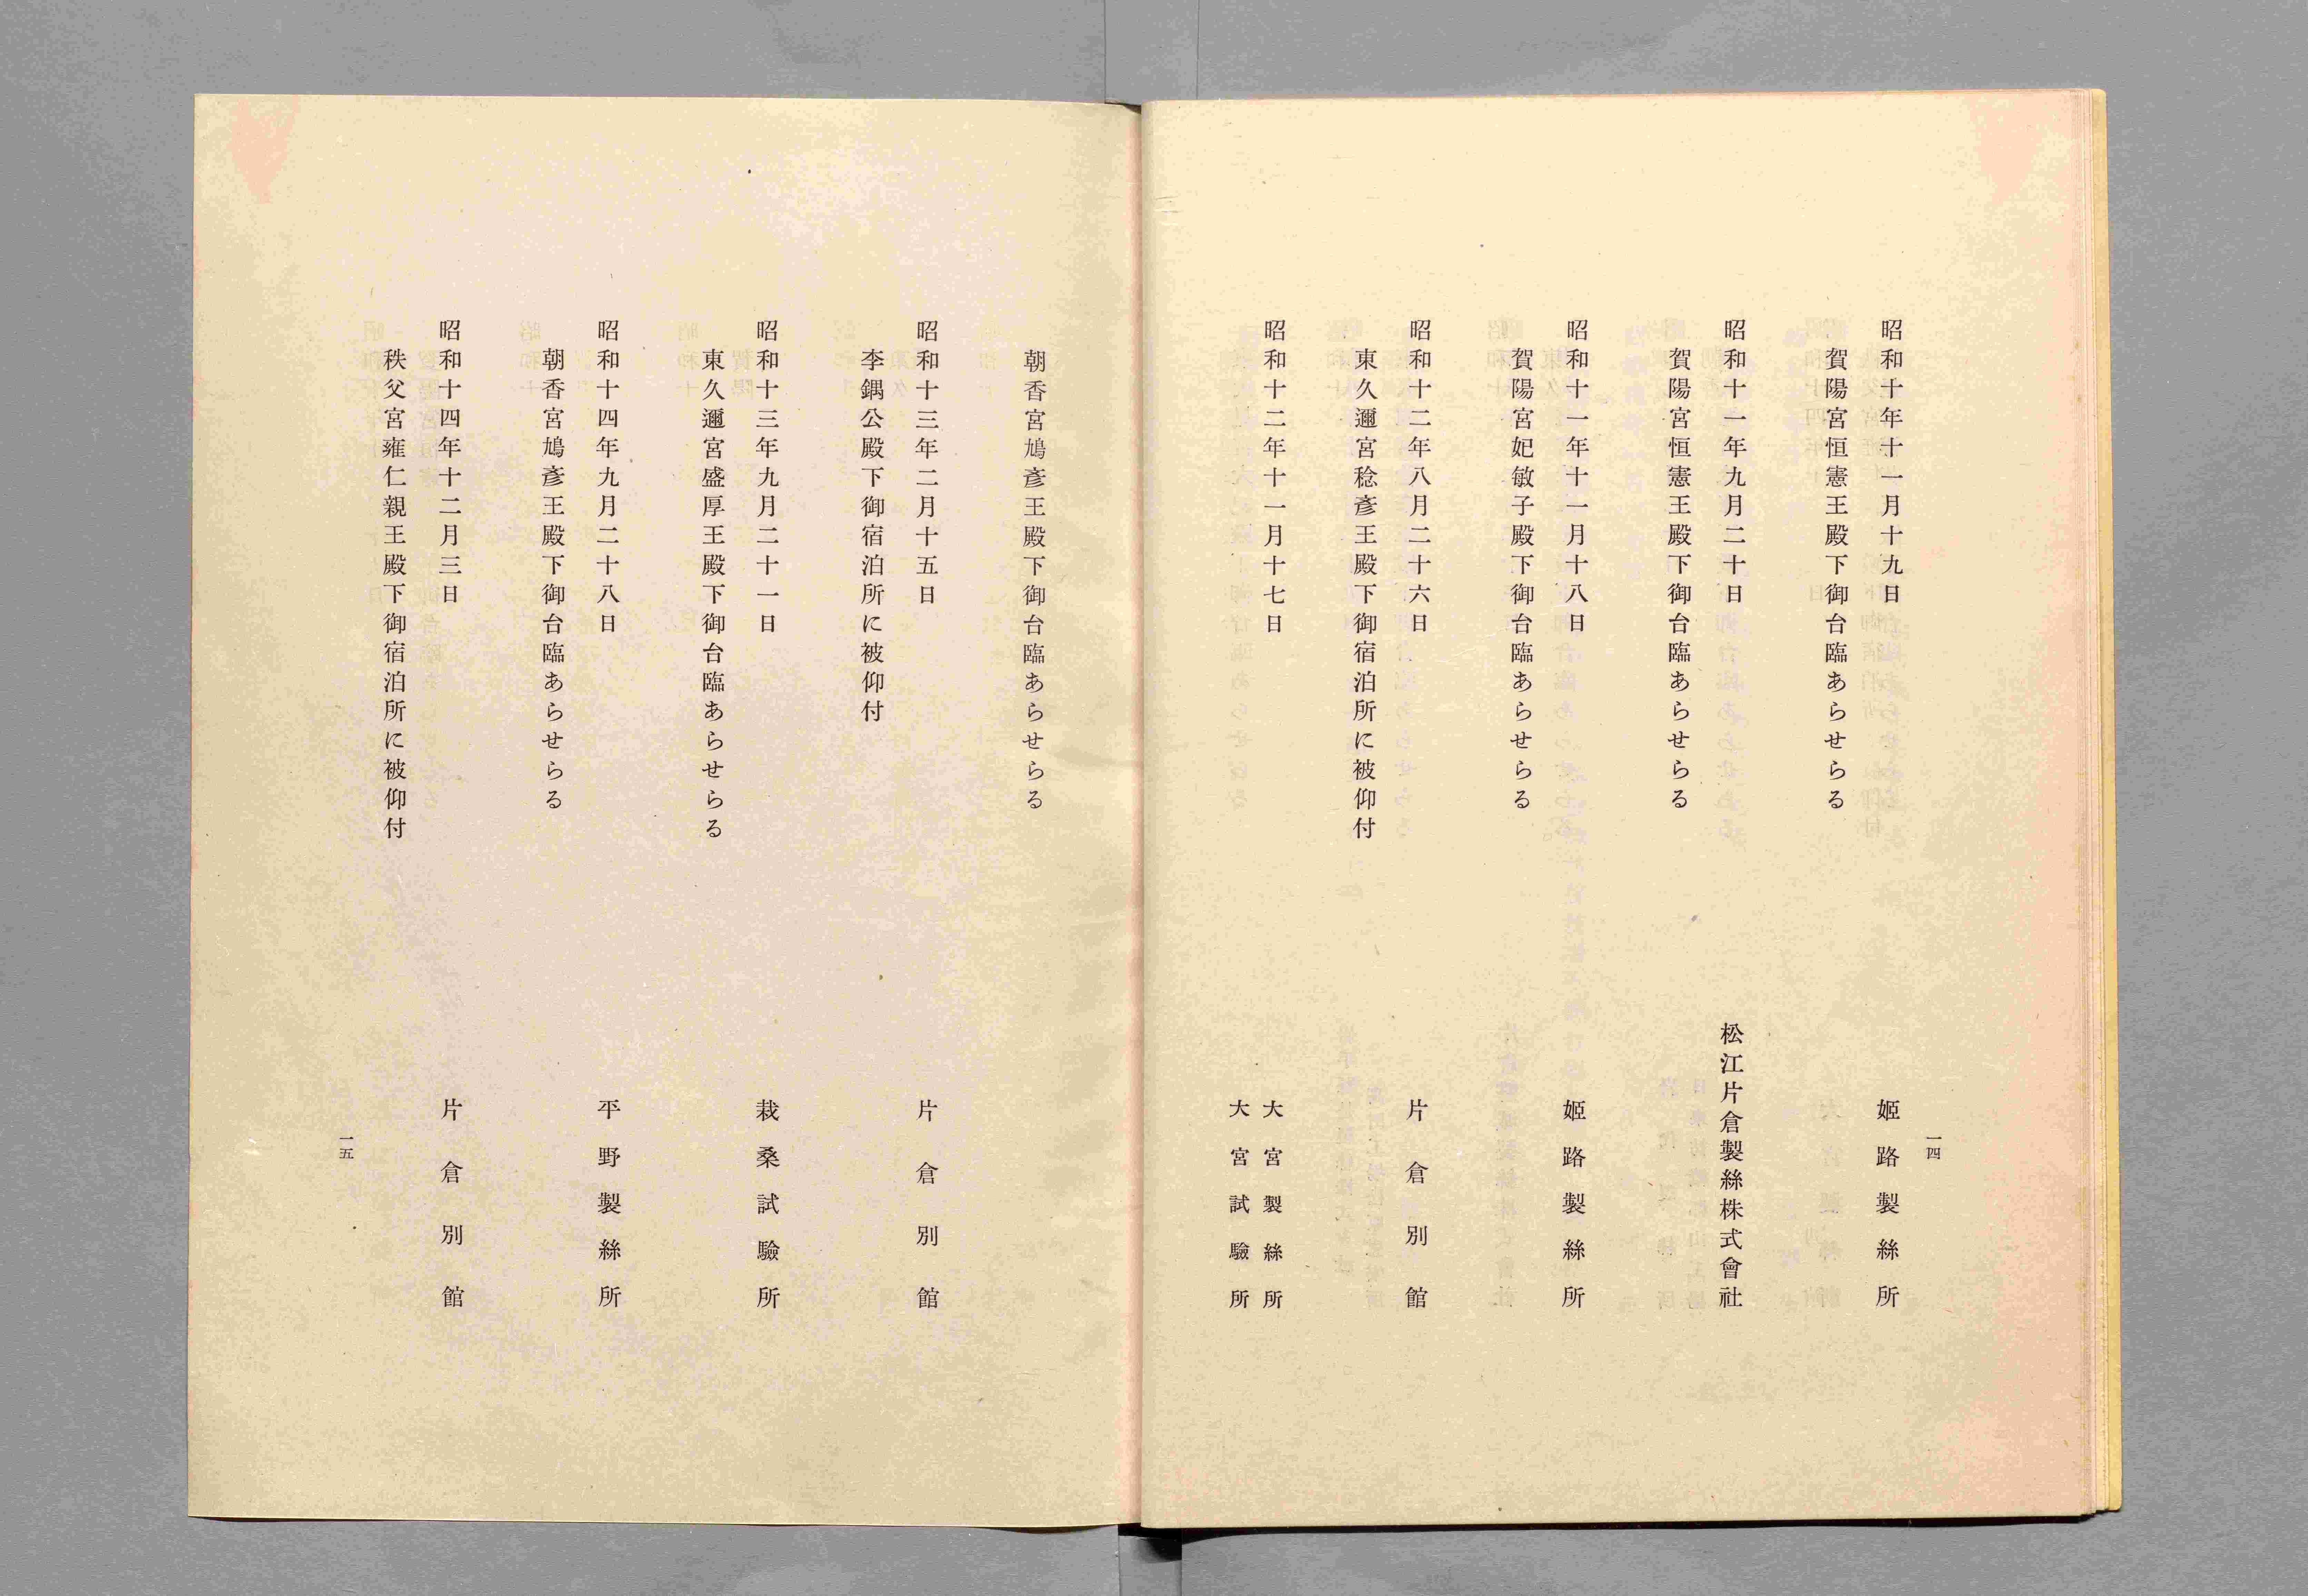 一四
昭和十年十一月十九日　姫路製絲所
賀陽宮恒憲王殿下御台臨あらせらる
昭和十一年九月二十日　松江片倉製絲株式會社
賀陽宮恒憲王殿下御台臨あらせらる
昭和十一年十一月十八日　姫路製絲所
賀陽宮妃敏子殿下御台臨あらせらる
昭和十二年八月二十六日　片倉別館
東久邇宮稔彦王殿下御宿泊所に被仰付
昭和十二年十一月十七日　大宮製絲所
大宮試驗所
朝香宮鳩彦王殿下御台臨あらせらる
昭和十三年二月十五日　片倉別館
李鍝公殿下御宿泊所に被仰付
昭和十三年九月二十一日　栽桑試驗所
東久邇宮盛厚王殿下御台臨あらせらる
昭和十四年九月二十八日　平野製絲所
朝香宮鳩彦王殿下御台臨あらせらる
昭和十四年十二月三日　片倉別館
秩父宮雍仁親王殿下御宿泊所に被仰付
一五